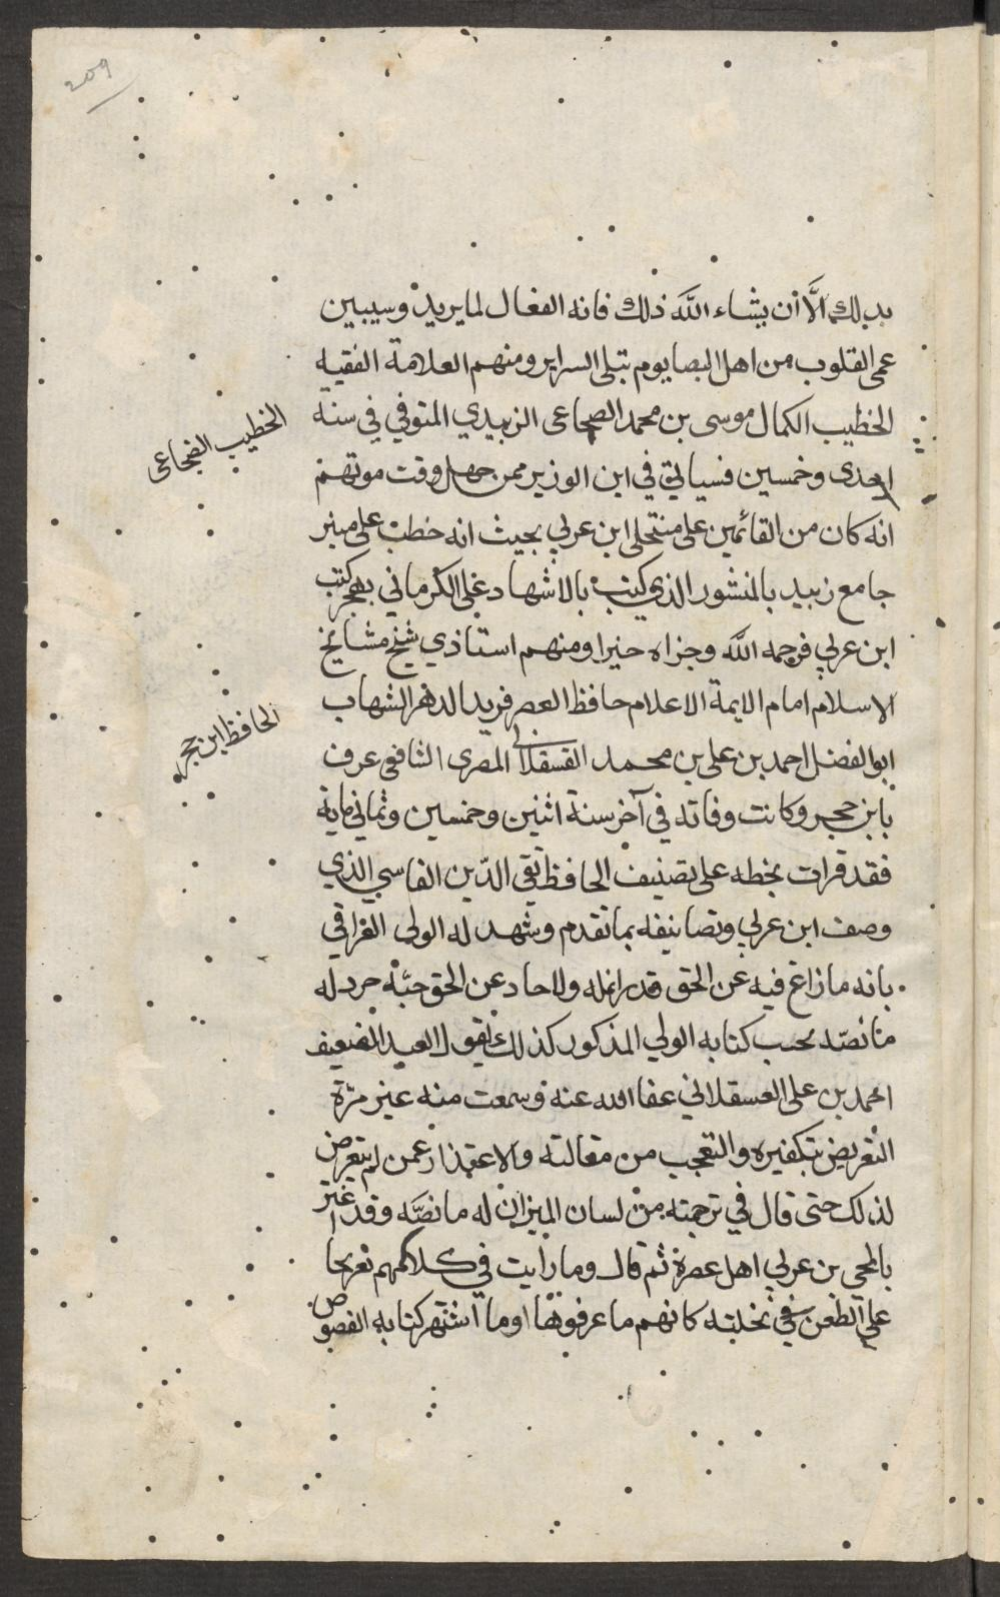 ٢٥٩
بذلك الَّا أن يشاء اللَّه ذلك فانه الفعال لما يريد وسيبين
عمى القلوب من اهل البصا يوم تبلى السراير ومنهم العلامة الفقيه
الخطيب الكمال موسى بن محمد الضجاعى الزبيدي المتوفي في سنة
احدى وخمسين فسياتي في ابن الوزير ممن جهل وقت موتهم
انه كان من القائمين على منتحلي ابن عربي بحيث انه خطب على منبر
جامع زبيد بالمنشور الذي كتب بالاشهاد على الكرماني بهجر كتب
ابن عربي فرحمه اللَّه وجزاه خيرا ومنهم استاذي شيخ مشايخ
الاسلام امام الايمة الاعلام حافظ العصر فريد الدهر الشهاب
ابو الفضل احمد بن علي بن محمد العسقلاني المصرى الشافعي عرف
بابن حجر وكانت وفاته في آخر سنة اثنين وخمسين وثماني ماية
فقد قرات بخطه على تصنيف الحافظ تقي الدّين الفاسي الذي
وصف ابن عربي وتصانيفه بما تقدم وشهد له الولي العراقي
بانه ما زاغ فيه عن الحق قدر انمله ولا حاد عن الحق حبّة خردله
ما نصّه بحسب كتابه الولي المذكور كذلك يقول العبد الضعيف
احمد بن علي العسقلاني عفا الله عنه وسمعت منه غير مرّة
التعريض بتكفيره والتعجب من مقالته والاعتذار عمن لم يتعرض
لذلك حتى قال في ترجمته من لسان الميزان له ما نصّه وقد اغتر
بالمحي بن عربي اهل عصره ثم قال وما رايت في كلامهم تعريجا
على الطعن في نحلته كانهم ما عرفوها او ما اشتهر كتابه الفصوص
الخطيب الضجاعى
الحافظ ابن حجر